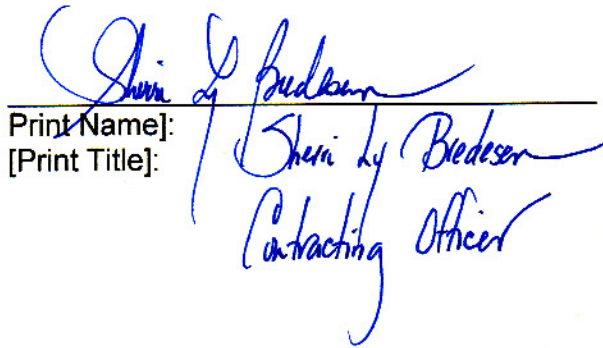 Sherri Ly Bredesen
Print Name]: Sherri Ly Bredesen
[Print Title]:
Contracting Officer